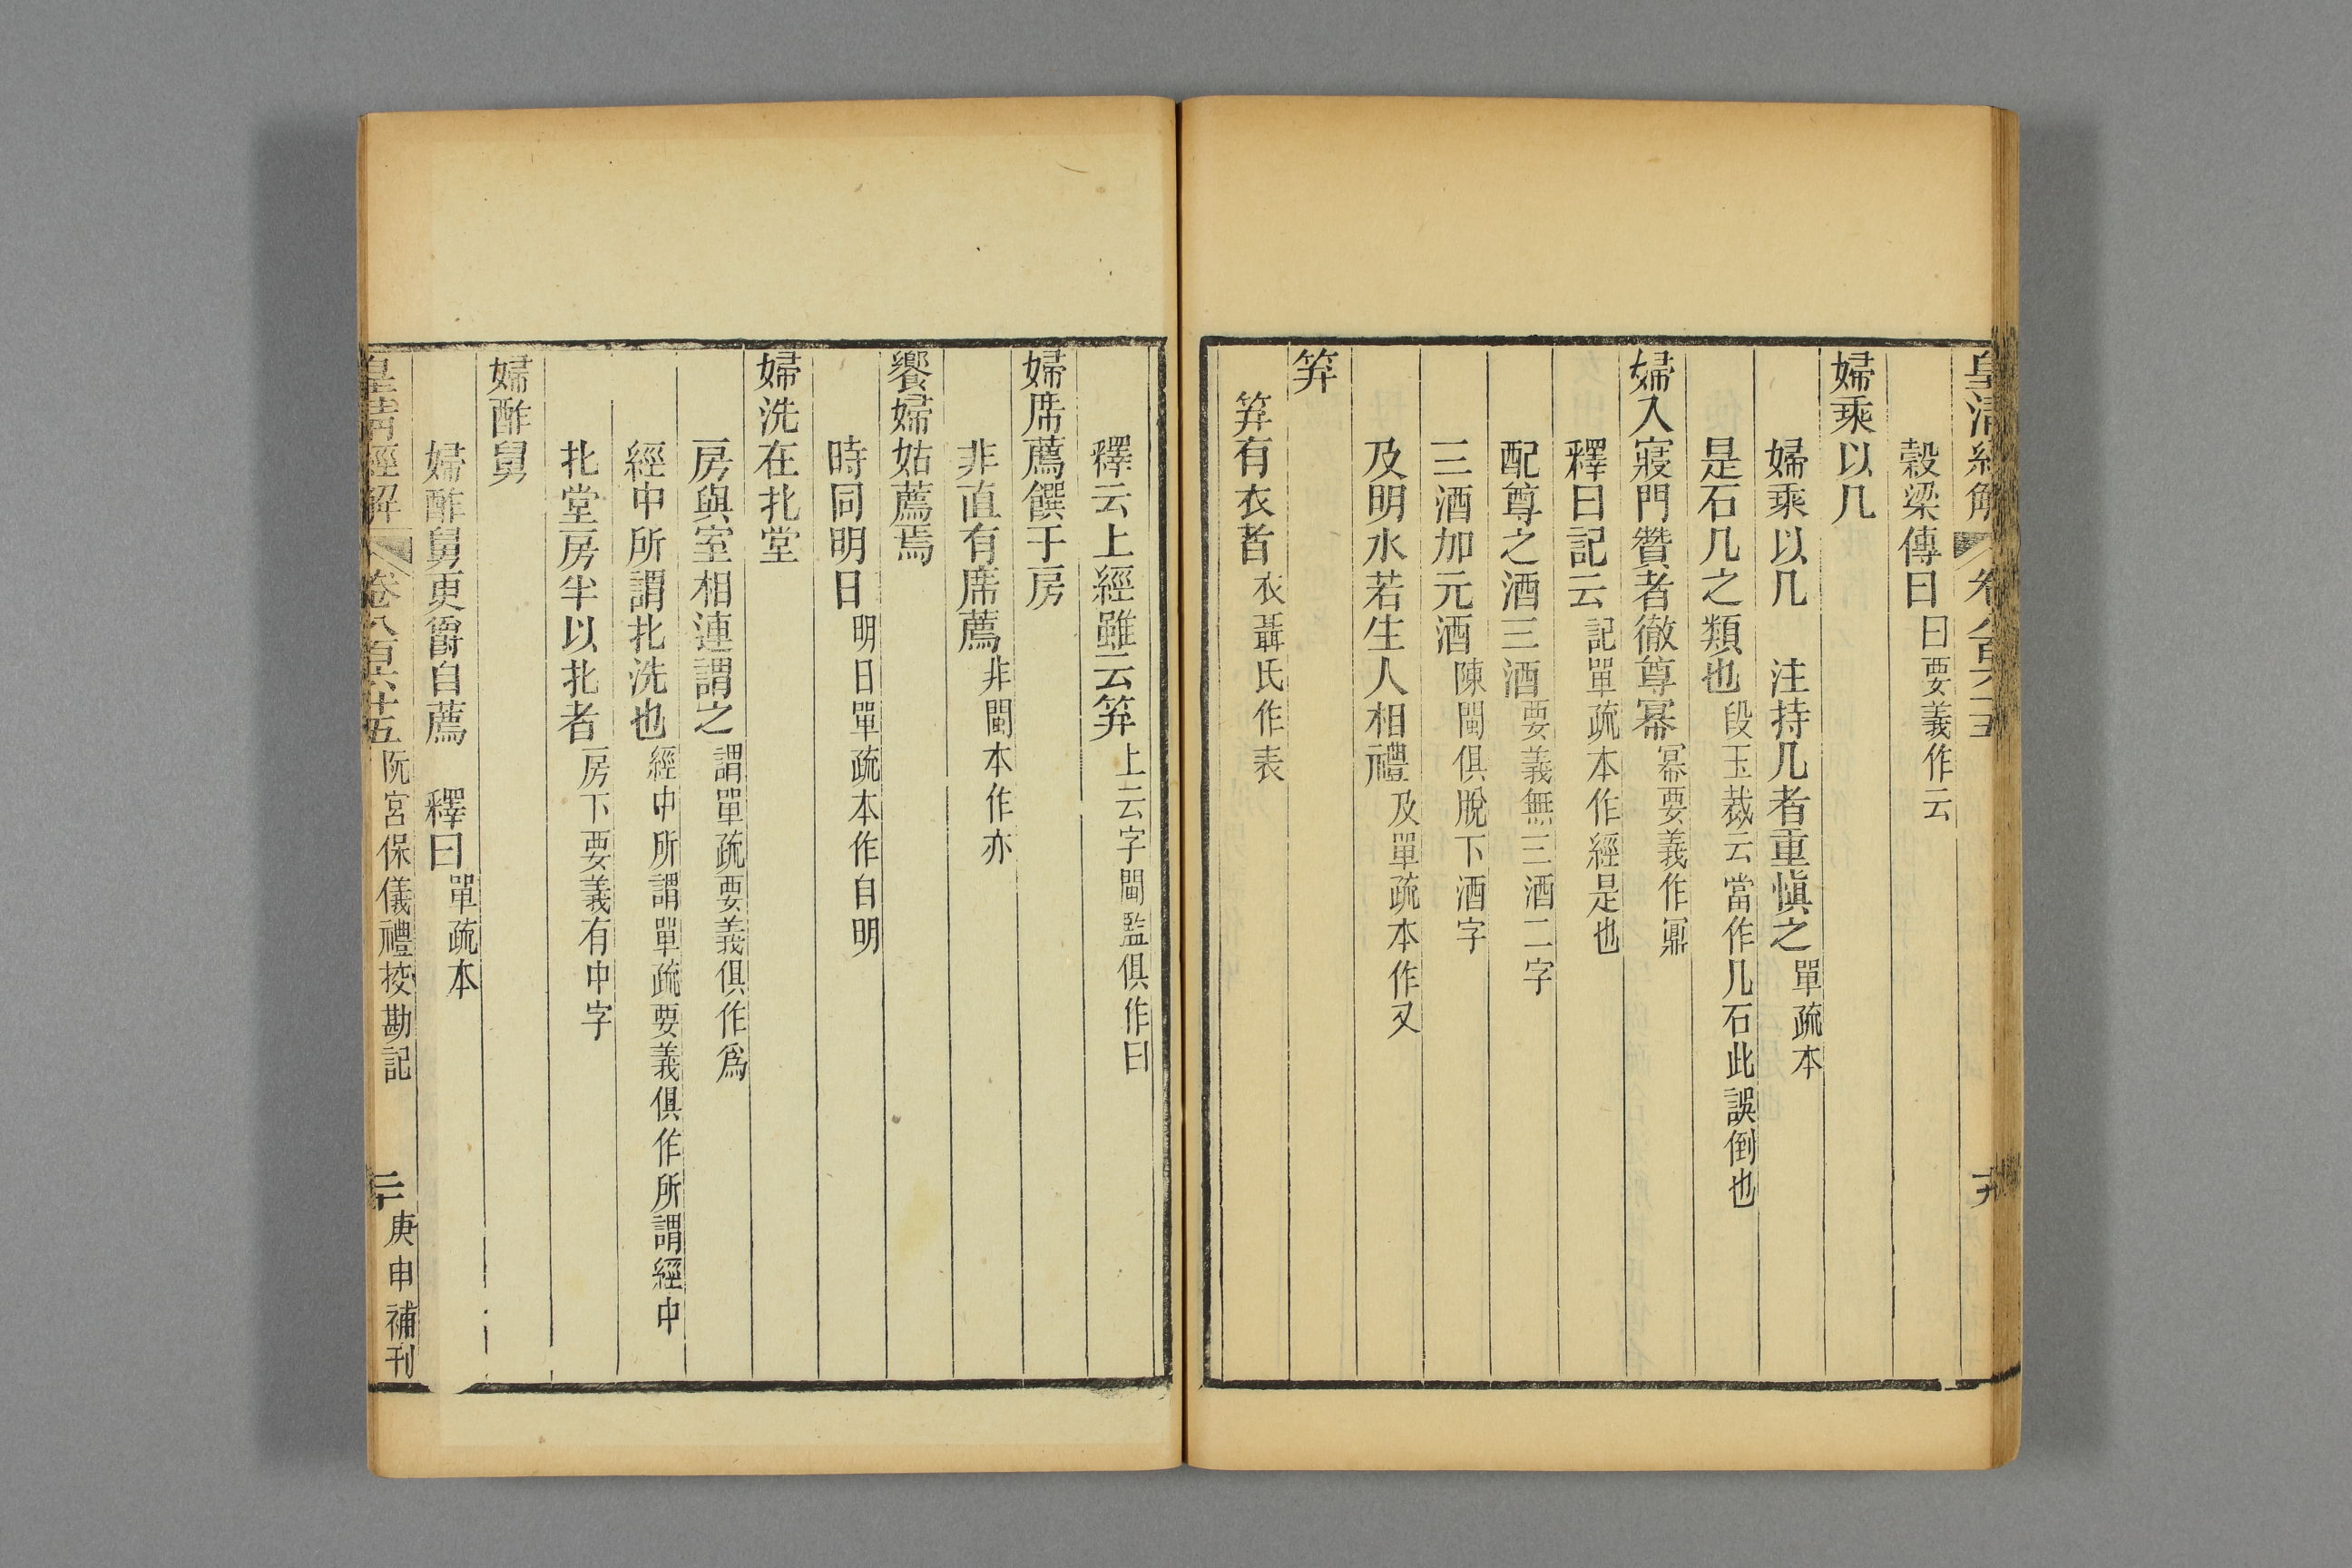 皇清經解 卷八百六十五 十九
穀梁傳曰曰要義作云
婦乘以几
婦乘以几 注持几者重愼之單疏本
是石几之類也段玉裁云當作几石此誤倒也
婦入寢門贊者徹尊冪冪要義作鼏
釋曰記云記單疏本作經是也
配尊之酒三酒要義無三酒二字
三酒加元酒陳閩俱脫下酒字
及明水若生人相禮及單疏本作又
笲
笲有衣者衣聶氏作表
釋云上經雖云笲上云字閩監俱作曰
婦席薦饌于房
非直有席薦非閩本作亦
饗婦姑薦焉
時同明日明日單疏本作自明
婦洗在北堂
房與室相連謂之謂單疏要義俱作爲
經中所謂北洗也經中所謂單疏要義俱作所謂經中
北堂房半以北者房下要義有中字
婦酢舅
婦酢舅更爵自薦 釋曰單疏本
皇清經解 卷八百六十五 阮宮保儀禮挍勘記 二十 庚申補刊